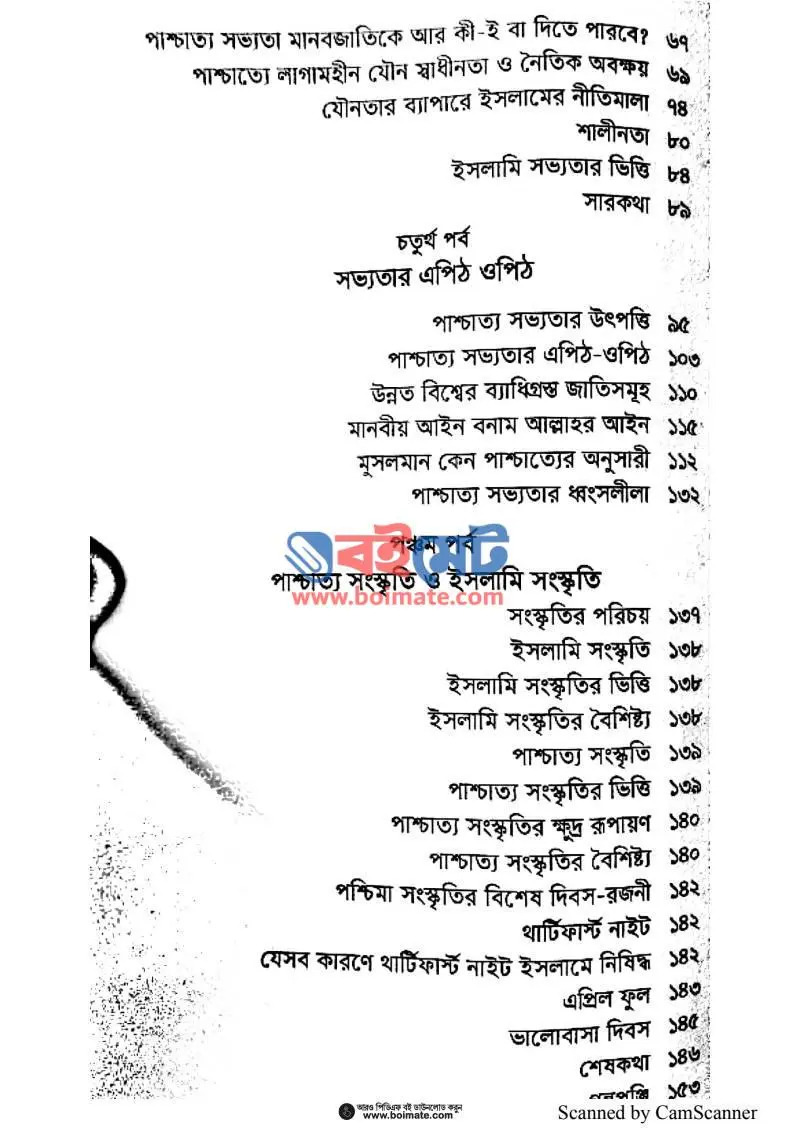 পাশ্চাত্য সভ্যতা মানবজাতিকে আর কী-ই বা দিতে পারবে? ৬৭
পাশ্চাত্যে লাগামহীন যৌন স্বাধীনতা ও নৈতিক অবক্ষয় ৬৯
যৌনতার ব্যাপারে ইসলামের নীতিমালা ৭৪
শালীনতা ৮০
ইসলামি সভ্যতার ভিত্তি ৮৪
সারকথা ৮৯
চতুর্থ পর্ব
সভ্যতার এপিঠ ওপিঠ
পাশ্চাত্য সভ্যতার উৎপত্তি ৯৫
পাশ্চাত্য সভ্যতার এপিঠ-ওপিঠ ১০৩
উন্নত বিশ্বের ব্যাধিগ্রস্ত জাতিসমূহ ১১০
মানবীয় আইন বনাম আল্লাহর আইন ১১৫
মুসলমান কেন পাশ্চাত্যের অনুসারী ১১২
পাশ্চাত্য সভ্যতার ধ্বংসলীলা ১৩২
পঞ্চম পর্ব
বইমেট
পাশ্চাত্য সংস্কৃতি ও ইসলামি সংস্কৃতি
www.boimate.com
সংস্কৃতির পরিচয় ১৩৭
ইসলামি সংস্কৃতি ১৩৮
ইসলামি সংস্কৃতির ভিত্তি ১৩৮
ইসলামি সংস্কৃতির বৈশিষ্ট্য ১৩৮
পাশ্চাত্য সংস্কৃতি ১৩৯
পাশ্চাত্য সংস্কৃতির ভিত্তি ১৩৯
পাশ্চাত্য সংস্কৃতির ক্ষুদ্র রূপায়ণ ১৪০
পাশ্চাত্য সংস্কৃতির বৈশিষ্ট্য ১৪০
পশ্চিমা সংস্কৃতির বিশেষ দিবস-রজনী ১৪২
থার্টিফার্স্ট নাইট ১৪২
যেসব কারণে থার্টিফার্স্ট নাইট ইসলামে নিষিদ্ধ ১৪২
এপ্রিল ফুল ১৪৩
ভালোবাসা দিবস ১৪৫
শেষকথা ১৪৬
১৫৩
আরও পিডিএফ বই ডাউনলোড করুন
www.boimate.com
Scanned by CamScanner